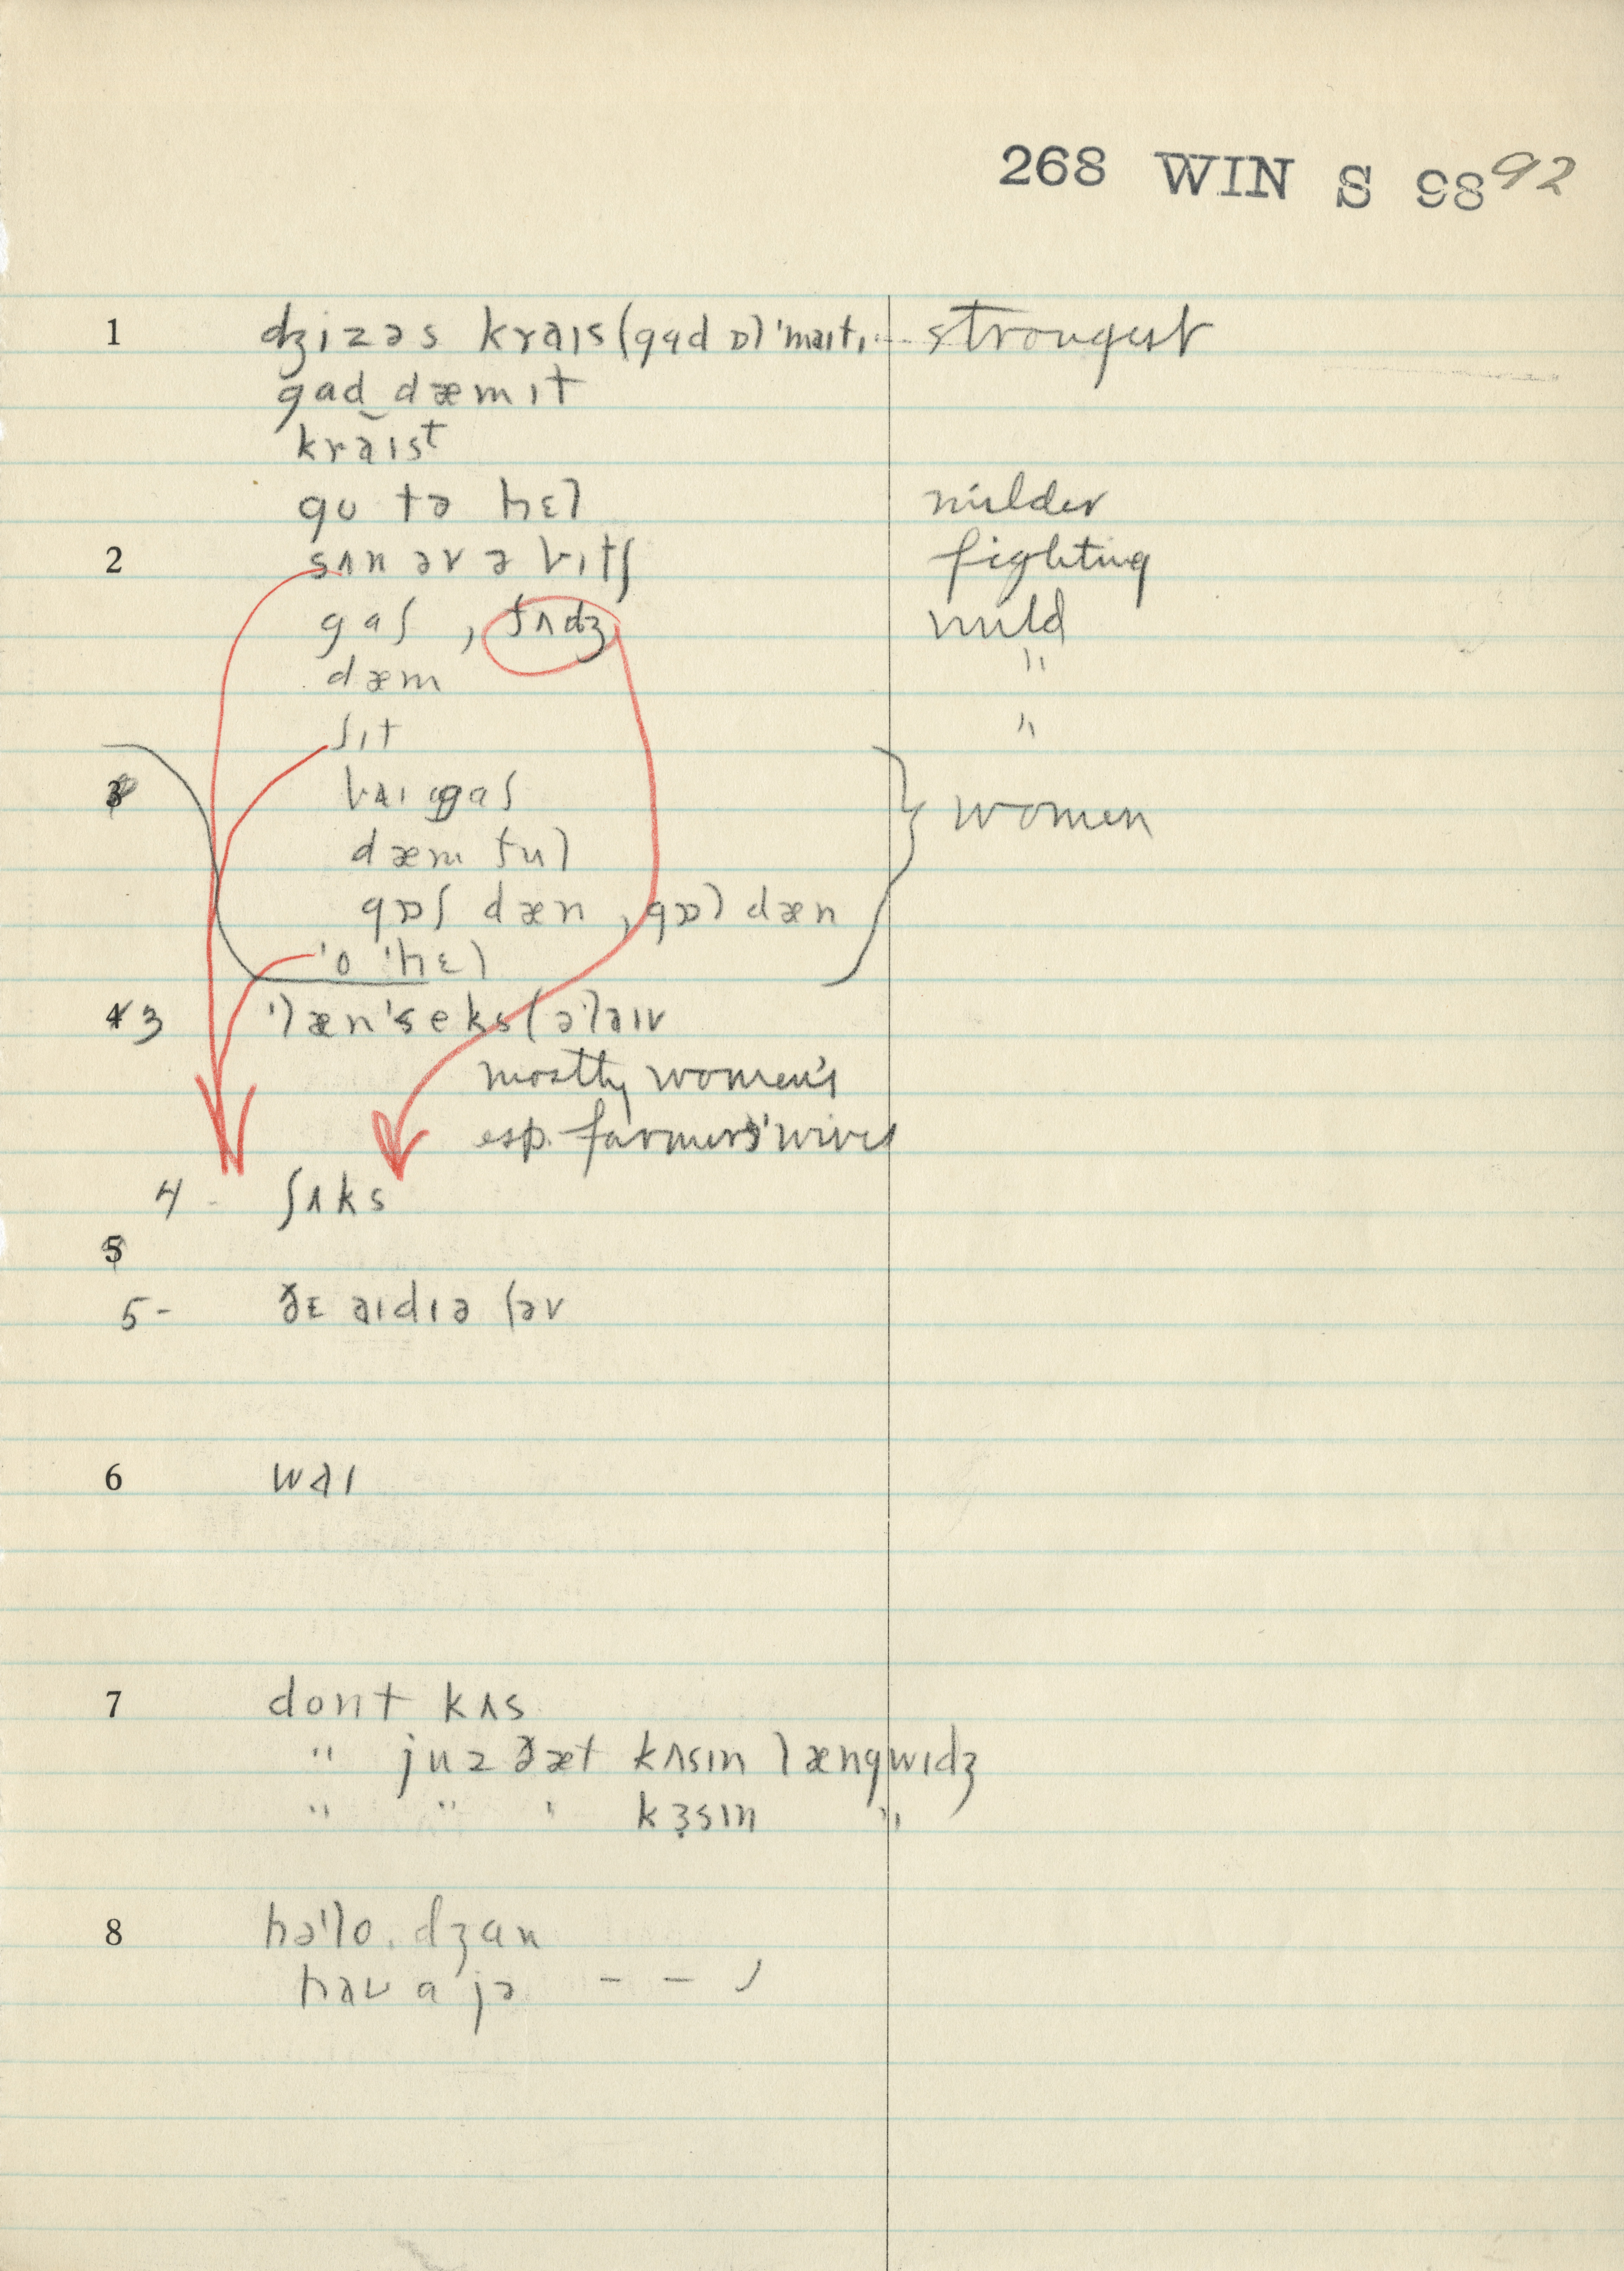 268 WIN S 98 92
1 dʒizəs kraɪs (gad ɒl ˈmaɪtɪ strongest
gad dæmɪt
kraɪst
go tə hɛl milder
2 sʌn əv ə bɪtʃ fighting
gaʃ , fʌdʒ mild
dæm "
ʃɪt "
3 baɪ gaʃ
dæm ful women
gɒʃ dæn , gɒl dæn
ˈo ˈhɛl
4 3 ˈlænˈseks (əˈlaɪv
mostly women's
esp. farmers' wives
4 - ʃʌks
5
5 - ðɛ aɪdɪə (əv
6 waɪ
7 dont kʌs
" juz ðæt kʌsɪn længwɪdʒ
" " ' kɜsɪn "
8 həˈlo. dʒan
haʊ a jə - -